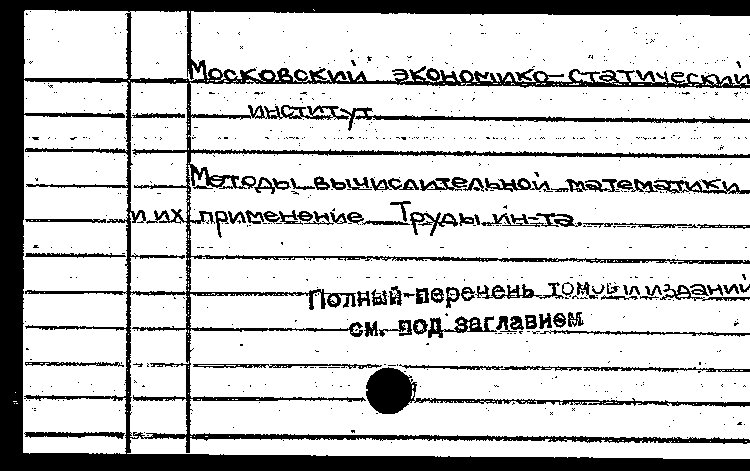 Московский экономико-статический
институт
Методы вычислительной математики
и их применение Труды ин-та.
Полный перечень томов и изданий
см. под заглавием